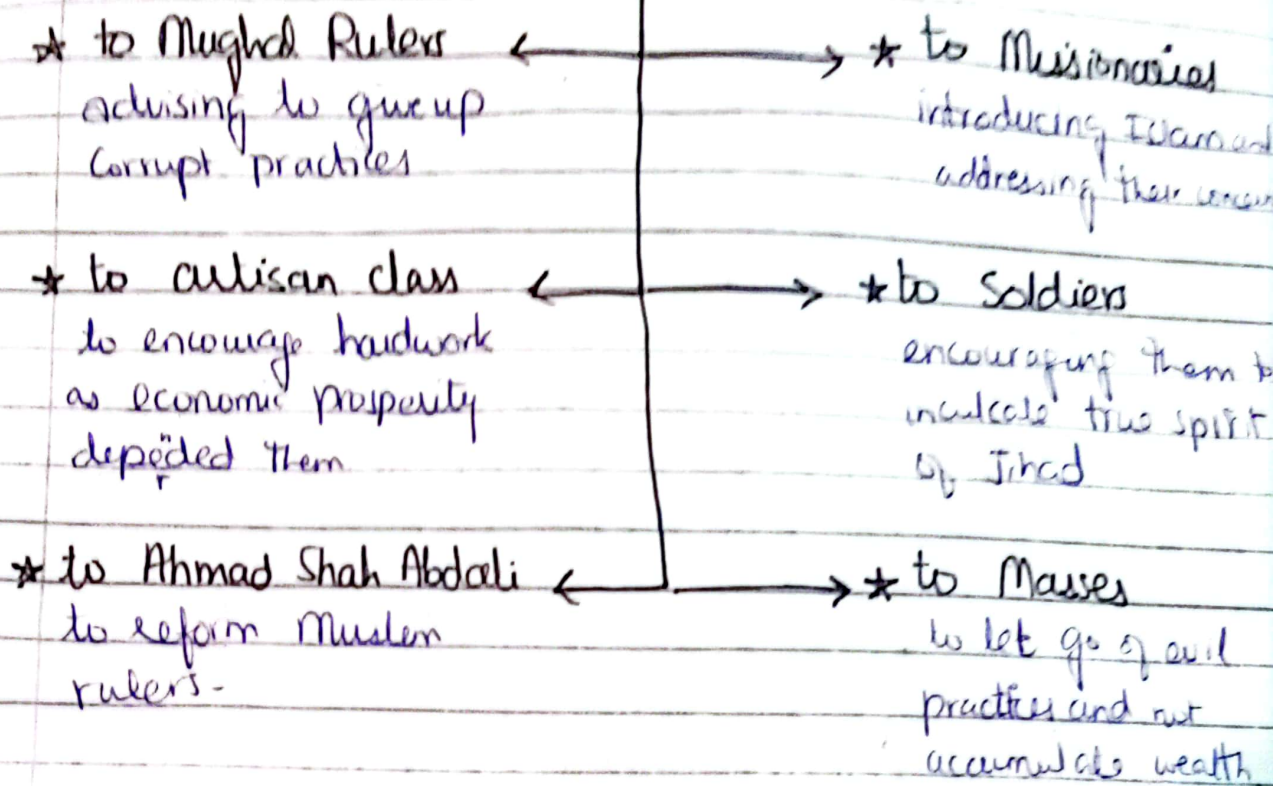 ★ to Mughal Rulers
advising to give up
Corrupt practices
★ to artisan class
to encourage hardwork
as economic prosperity
depended them
★ to Ahmad Shah Abdali
to reform Muslem
rulers-
★ to Missionaries
introducing Islam and
addressing their
★ to Soldiers
encouraging them to
inculcate true spirit
of Jihad
★ to Masses
to let go of evil
practices and not
accumulate wealth